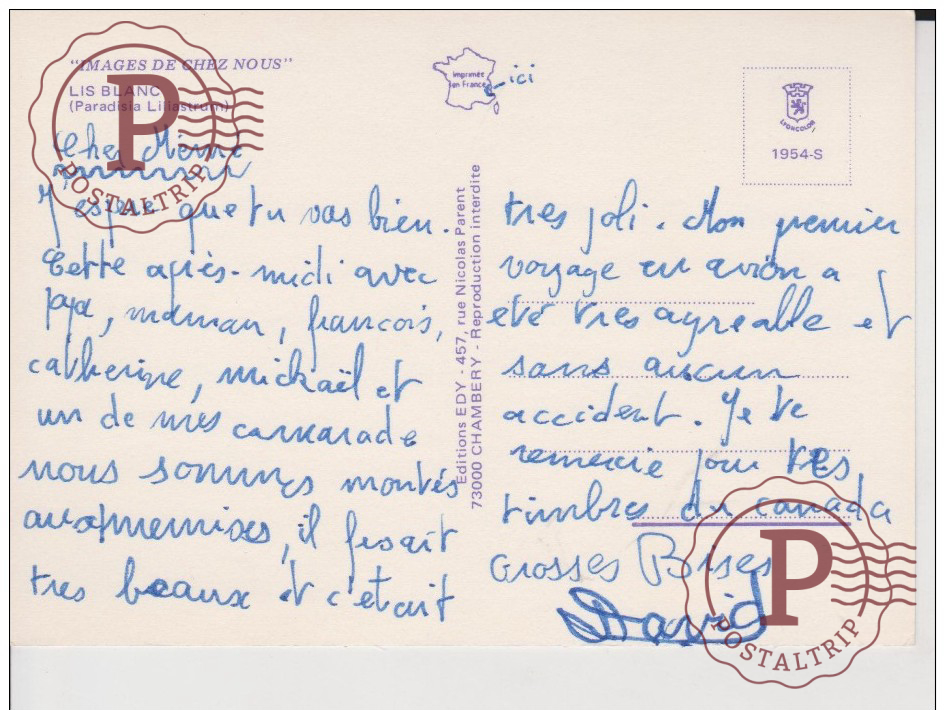 "IMAGES DE CHEZ NOUS"
LIS BLANC
(Paradisia Liliastrum)
Cher Mémé
J'espère que tu vas bien.
Cette après-midi avec
papa, maman, françois,
catherine, mickaël et
un de mes camarade
nous sommes montés
il fesait
tres beaux et c'était
imprimée
en France
ici
Editions EDY - 457, rue Nicolas Parent
73000 CHAMBERY - Reproduction interdite
LYONCOLOR
1954-S
très joli. Mon premier
voyage en avion a
eté tres agreable et
sans aucun
accident. Je te
remercie pour tes
timbres du canada
Grosses Bises
David
P
POSTALTRIP
P
POSTALTRIP